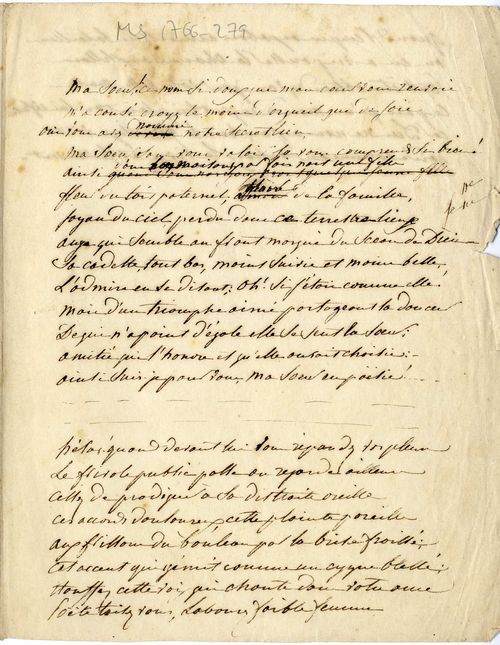 MS 1766-279
Ma Sœur, ce nom si doux que mon cœur vous renvoie
n'a causé croyez le moins d'orgueil que de joie
oui vous avez nommé notre
ma Sœur, vous je vous comprends si bien!
ainsi dans nos maisons
fleur du toit paternel, amour de la famille,
joyau du ciel, perdu dans ce terrestre lieu
ange qui semble au front marqué du Sceau de Dieu
Sa cadette, tout bas, moins suivie et moins belle,
L'admire en se disant: Oh! Si j'étais comme elle!
mais d'un triomphe aimé partageant la douceur
De qui n'a point d'égale elle se sent la Sœur;
amitié qui l'honore et qu'elle aurait choisie;
ainsi suis-je pour vous, ma Sœur en poésie!
hélas! quand devant lui vous répandez vos pleurs
Le frivole public passe ou regarde ailleurs
Cessez de prodiguer à sa distraite oreille
ces accords douloureux, cette plainte pareille
aux frissons du bouleau par la brise froissé,
cet accent qui gémit comme un cygne blessé;
étouffez cette voix qui chante dans votre âme
Poète taisez vous, Labourez faible femme